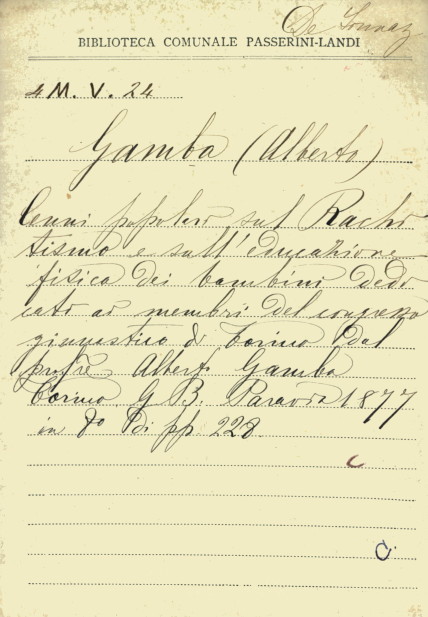 De Sonnaz
BIBLIOTECA COMUNALE PASSERINI-LANDI
4 M. V. 24
Gamba (Alberto)
Cenni popolari sul Rachi
tismo e sull'educazione
fisica dei bambini dedi
cato ai membri del congresso
ginnastico di Torino dal
profre Alberto Gamba
Torino G B. Paravia 1877
in 8º di pp 228.
C